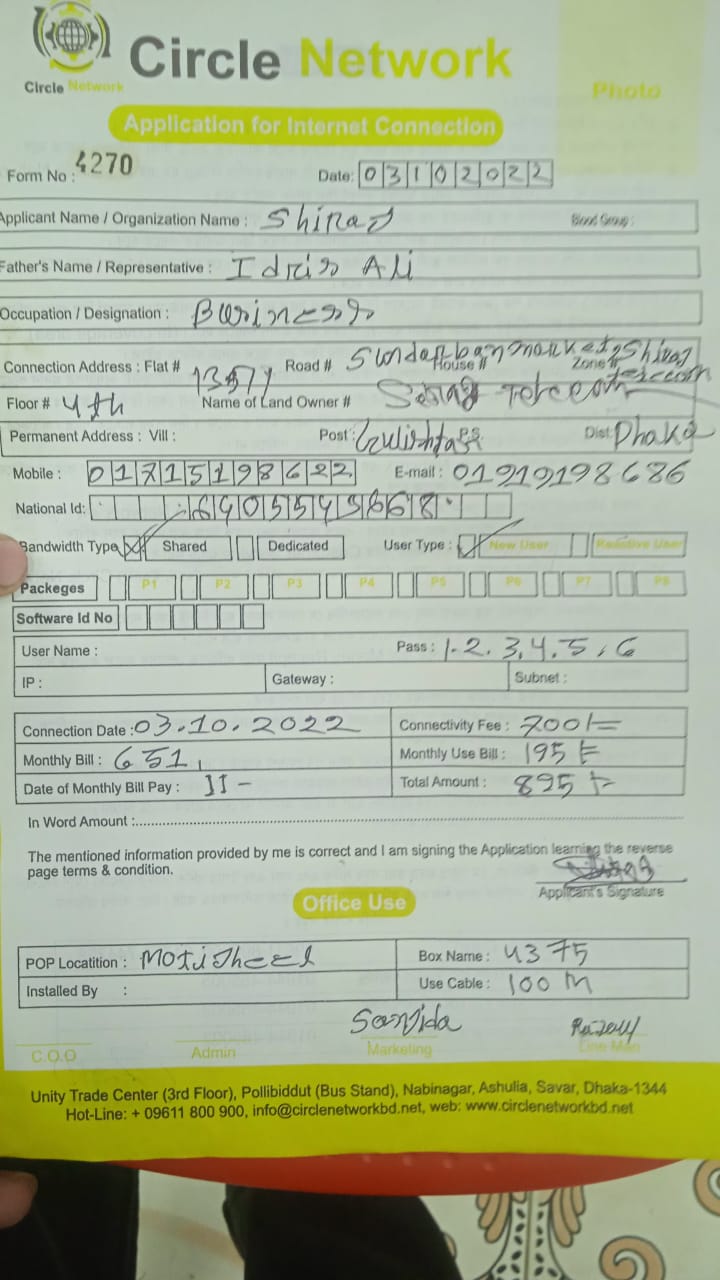 Circle Network
Circle Network
Photo
Application for Internet Connection
Form No : 4270 Date: 03102022
Applicant Name / Organization Name : Shirag Blood Group :
Father's Name / Representative : Idriss Ali
Occupation / Designation :
Connection Address : Flat # Road # House # Zone #
Floor # 4th Name of Land Owner #
Permanent Address : Vill : Post : P.S Dist: Dhaka
Mobile : 01715198622 E-mail : 01919198686
National Id:
Bandwidth Type Shared Dedicated User Type : New User
Packeges P1 P2 P3 P4 P5 P6 P7 P8
Software Id No
User Name : Pass : 1.2.3.4.5.6
IP : Gateway : Subnet :
Connection Date : 03.10.2022 Connectivity Fee : 700/=
Monthly Bill : 651 Monthly Use Bill : 195
Date of Monthly Bill Pay : Total Amount : 895
In Word Amount :
The mentioned information provided by me is correct and I am signing the Application learning the reverse
page terms & condition.
Applicant's Signature
Office Use
POP Locatition : Motijheel Box Name : 4375
Installed By : Use Cable : 100 m
C.O.O Admin Marketing Line Man
Unity Trade Center (3rd Floor), Pollibiddut (Bus Stand), Nabinagar, Ashulia, Savar, Dhaka-1344
Hot-Line: + 09611 800 900, info@circlenetworkbd.net, web: www.circlenetworkbd.net